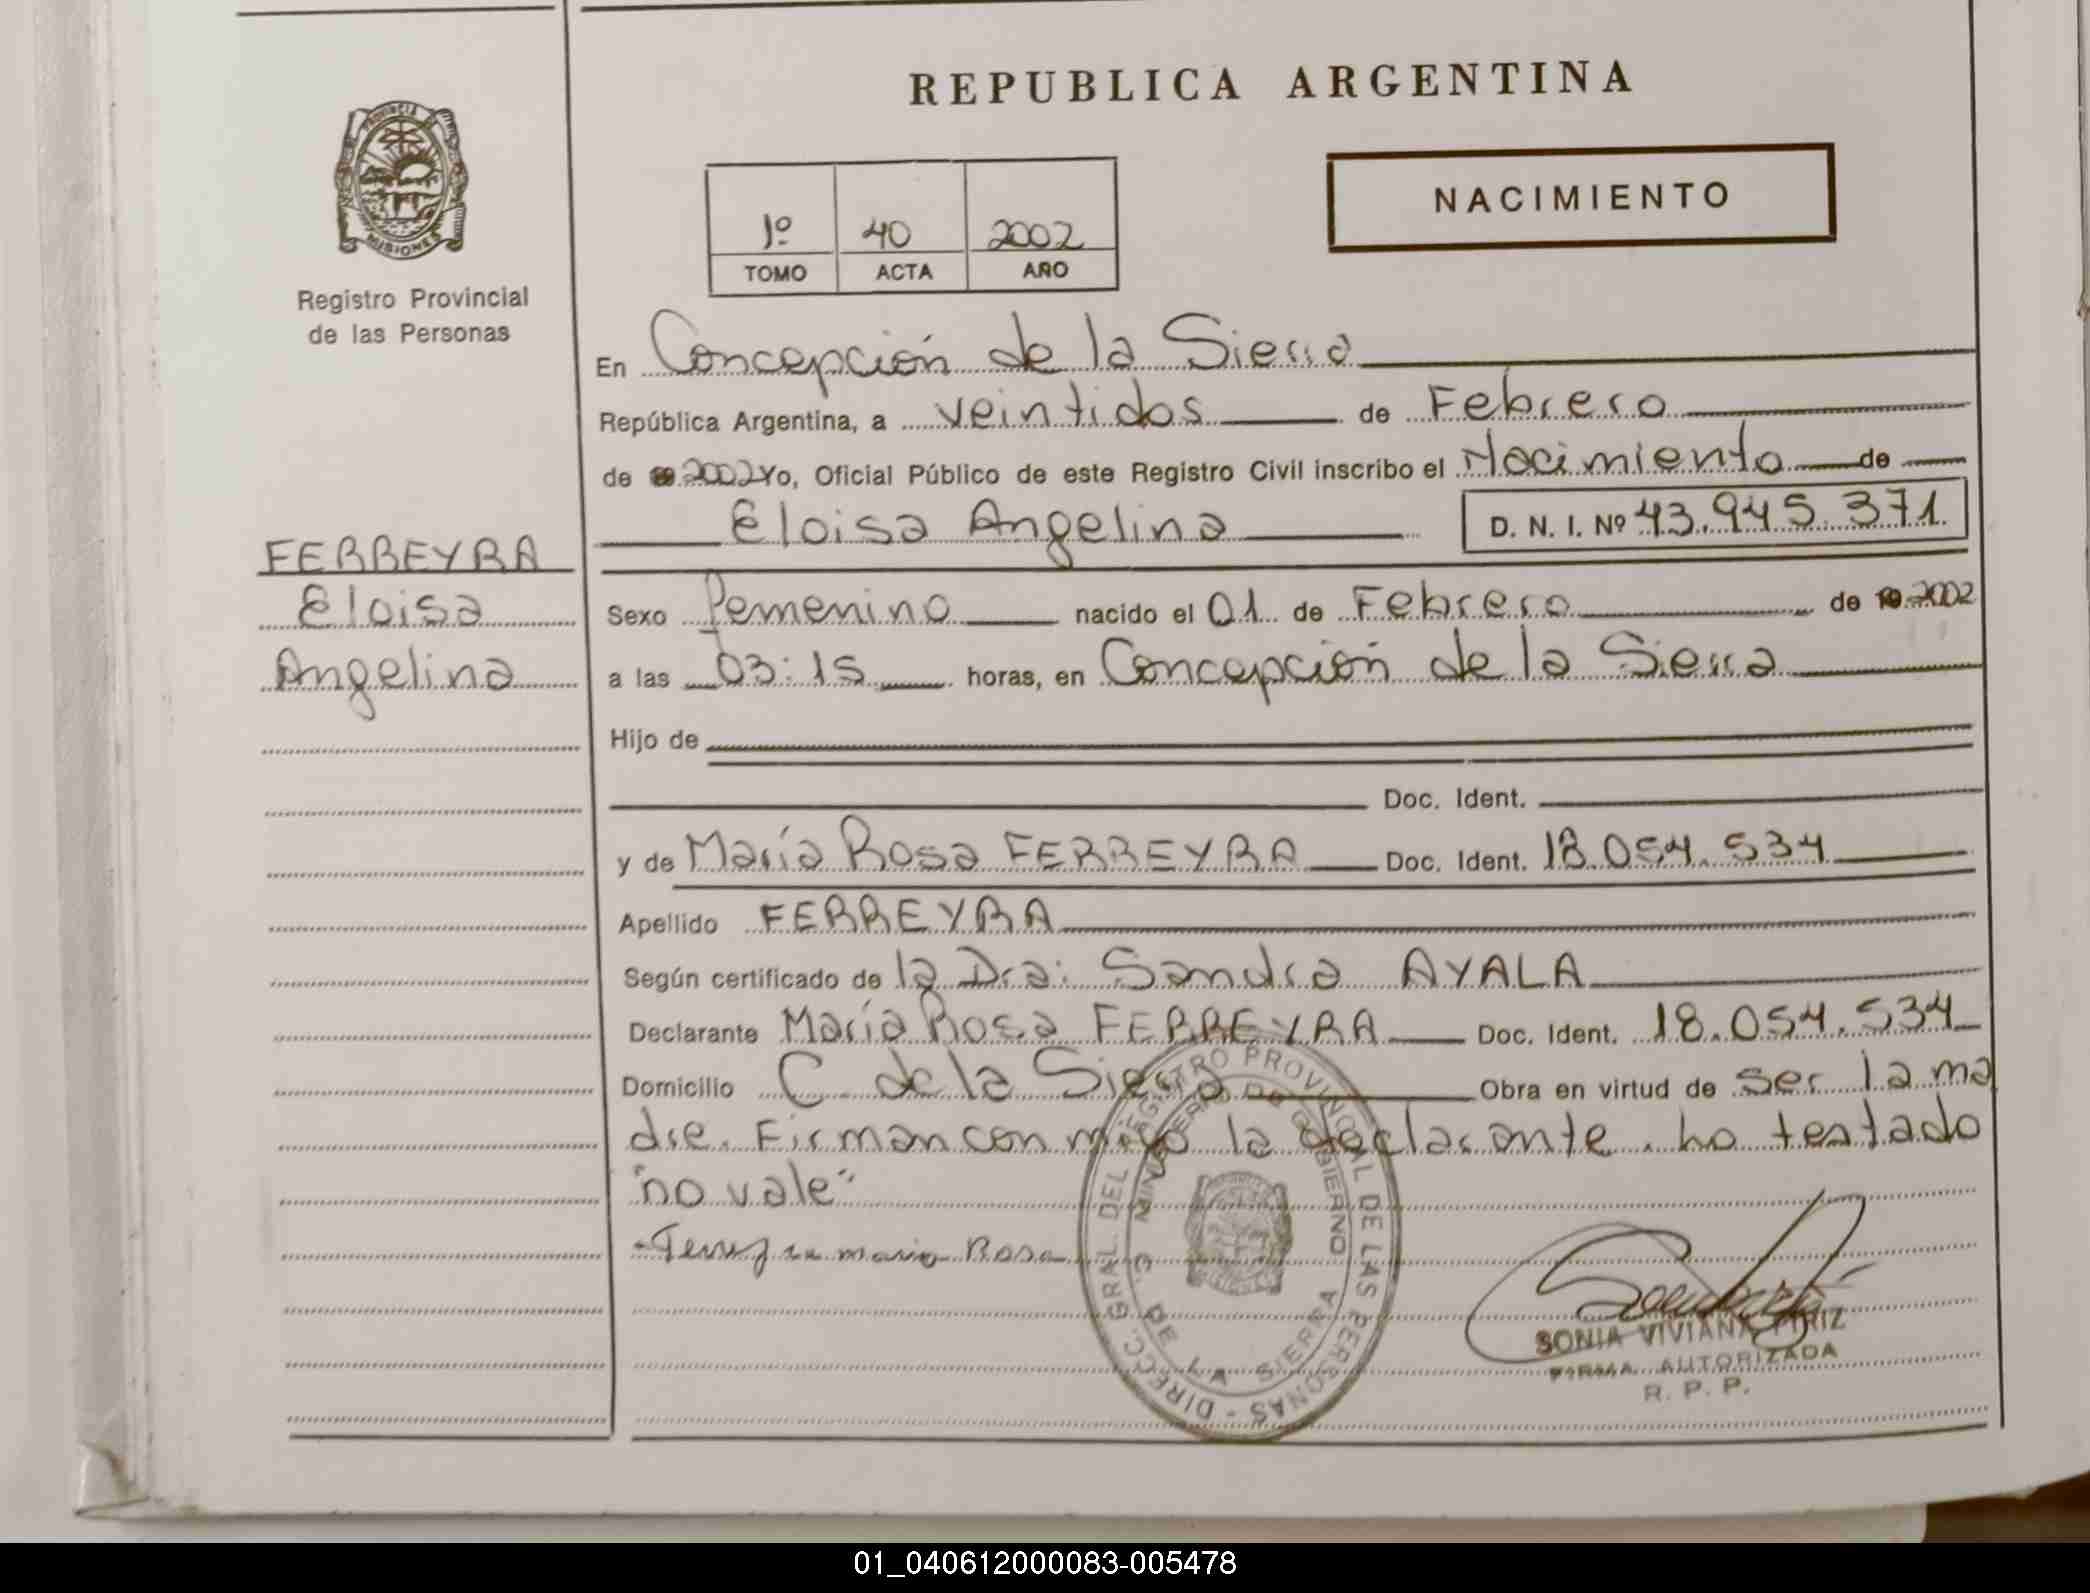 REPUBLICA ARGENTINA
PROVINCIA DE MISIONES
Registro Provincial
de las Personas
NACIMIENTO
1º 40 2002
TOMO ACTA AÑO
En Concepción de la Sierra
República Argentina, a veintidos de Febrero
de 2002 Yo, Oficial Público de este Registro Civil inscribo el Nacimiento de
Eloisa Angelina D. N. I. Nº 43.945.371
FERREYRA
Eloisa
Angelina
Sexo Femenino nacido el 01 de Febrero de 2002
a las 03:15 horas, en Concepción de la Sierra
Hijo de
Doc. Ident.
y de María Rosa FERREYRA Doc. Ident. 18.054.534
Apellido FERREYRA
Según certificado de la Dra: Sandra AYALA
Declarante María Rosa FERREYRA Doc. Ident. 18.054.534
Domicilio C. de la Sierra Obra en virtud de ser la ma
dre. Firman con migo la declarante. ho testado
"no vale"
maria Rosa
DIRECC. GRAL. DEL REGISTRO PROVINCIAL DE LAS PERSONAS
MINISTERIO DE GOBIERNO
C. DE LA SIERRA
SONIA VIVIANA PIRIZ
FIRMA AUTORIZADA
R. P. P.
01_040612000083-005478